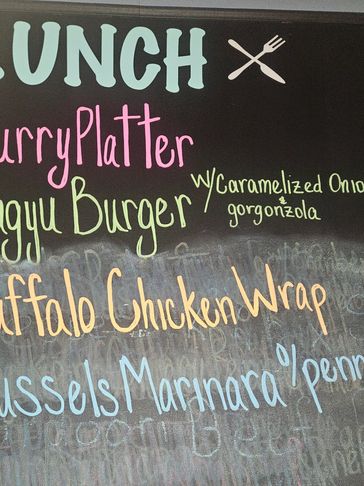 UNCH
urryPlatter
gyu Burger w/Caramelized Onio
& gorgonzola
uffalo Chicken Wrap
ussels Marinara o/penn